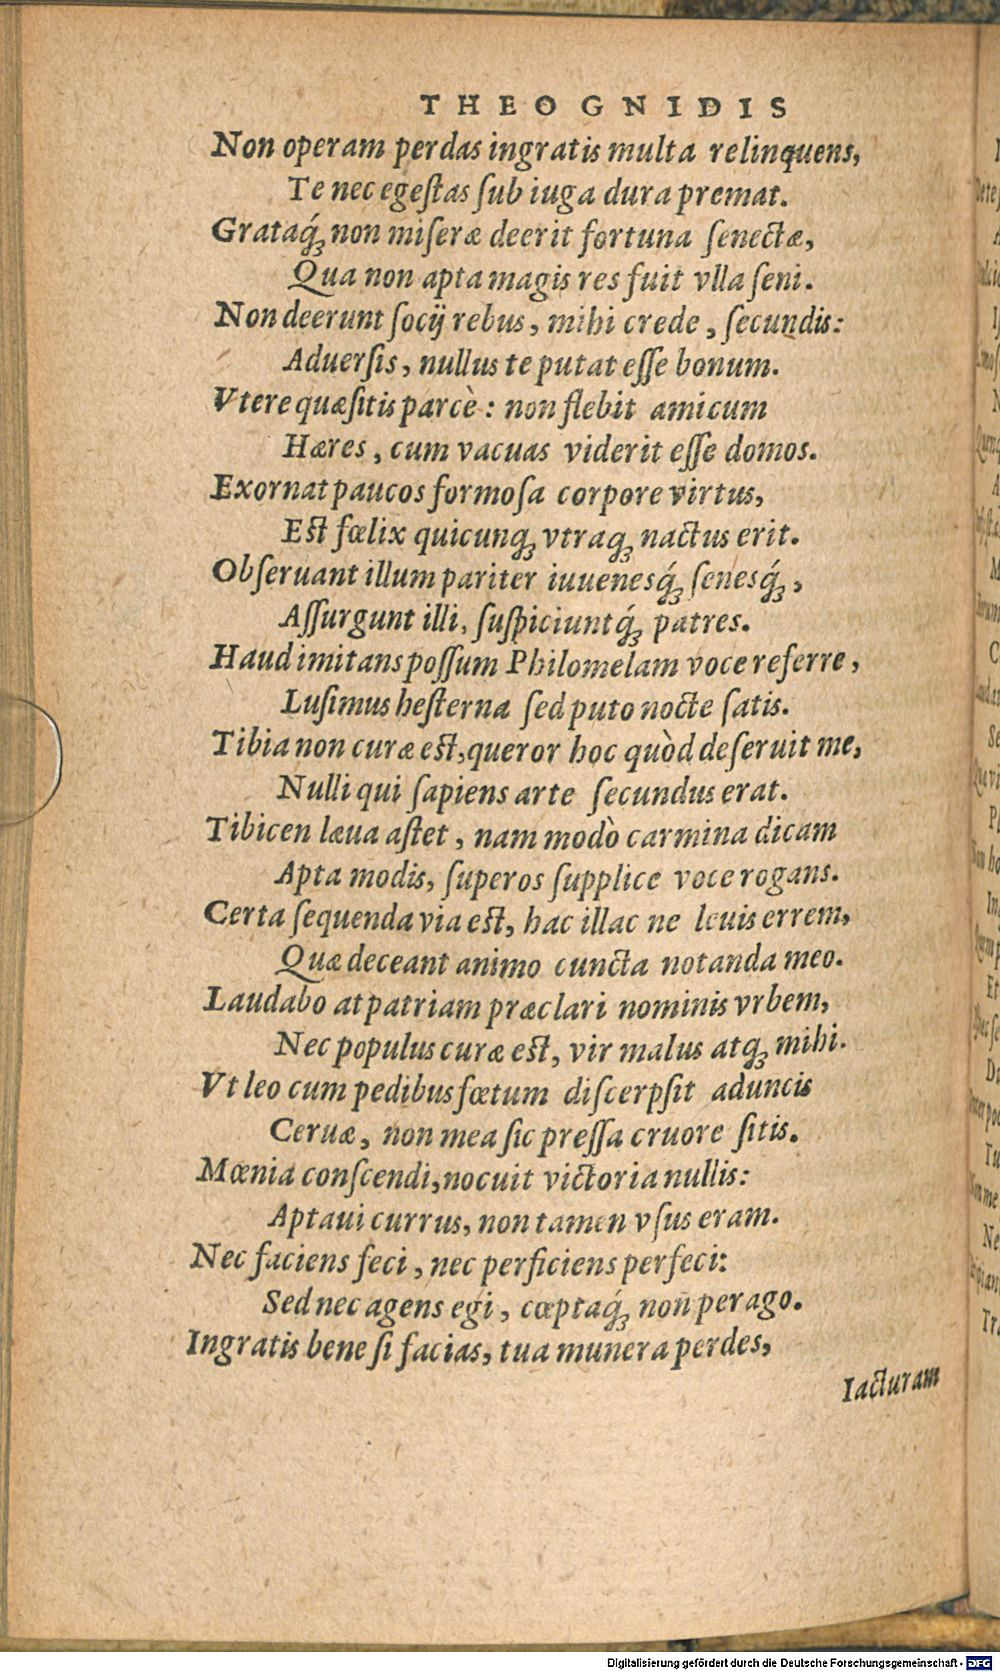 THEOGNIDIS
Non operam perdas ingratis multa relinquens,
Te nec egeſtas ſub iuga dura premat.
Grataq́ꝫ non miſeræ deerit fortuna ſenectæ,
Qua non apta magis res fuit vlla ſeni.
Non deerunt ſocij rebus, mihi crede, ſecundis:
Aduerſis, nullus te putat eſſe bonum.
Vtere quæſitis parcè: non flebit amicum
Hæres, cum vacuas viderit eſſe domos.
Exornat paucos formoſa corpore virtus,
Eſt fœlix quicunqꝫ vtraqꝫ nactus erit.
Obſeruant illum pariter iuuenesq́ꝫ ſenesq́ꝫ,
Aſſurgunt illi, ſuſpiciuntq́ꝫ patres.
Haud imitans poſſum Philomelam voce referre,
Luſimus heſterna ſed puto nocte ſatis.
Tibia non curæ eſt, queror hoc quòd deſeruit me,
Nulli qui ſapiens arte ſecundus erat.
Tibicen læua aſtet, nam modò carmina dicam
Apta modis, ſuperos ſupplice voce rogans.
Certa ſequenda via eſt, hac illac ne leuis errem,
Quæ deceant animo cuncta notanda meo.
Laudabo at patriam præclari nominis vrbem,
Nec populus curæ eſt, vir malus atqꝫ mihi.
Vt leo cum pedibus fœtum diſcerpſit aduncis
Ceruæ, non mea ſic preſſa cruore ſitis.
Mœnia conſcendi, nocuit victoria nullis:
Aptaui currus, non tamen vſus eram.
Nec faciens feci, nec perficiens perfeci:
Sed nec agens egi, cœptaq́ꝫ non perago.
Ingratis bene ſi facias, tua munera perdes,
Iacturam
Digitalisierung gefördert durch die Deutsche Forschungsgemeinschaft - DFG